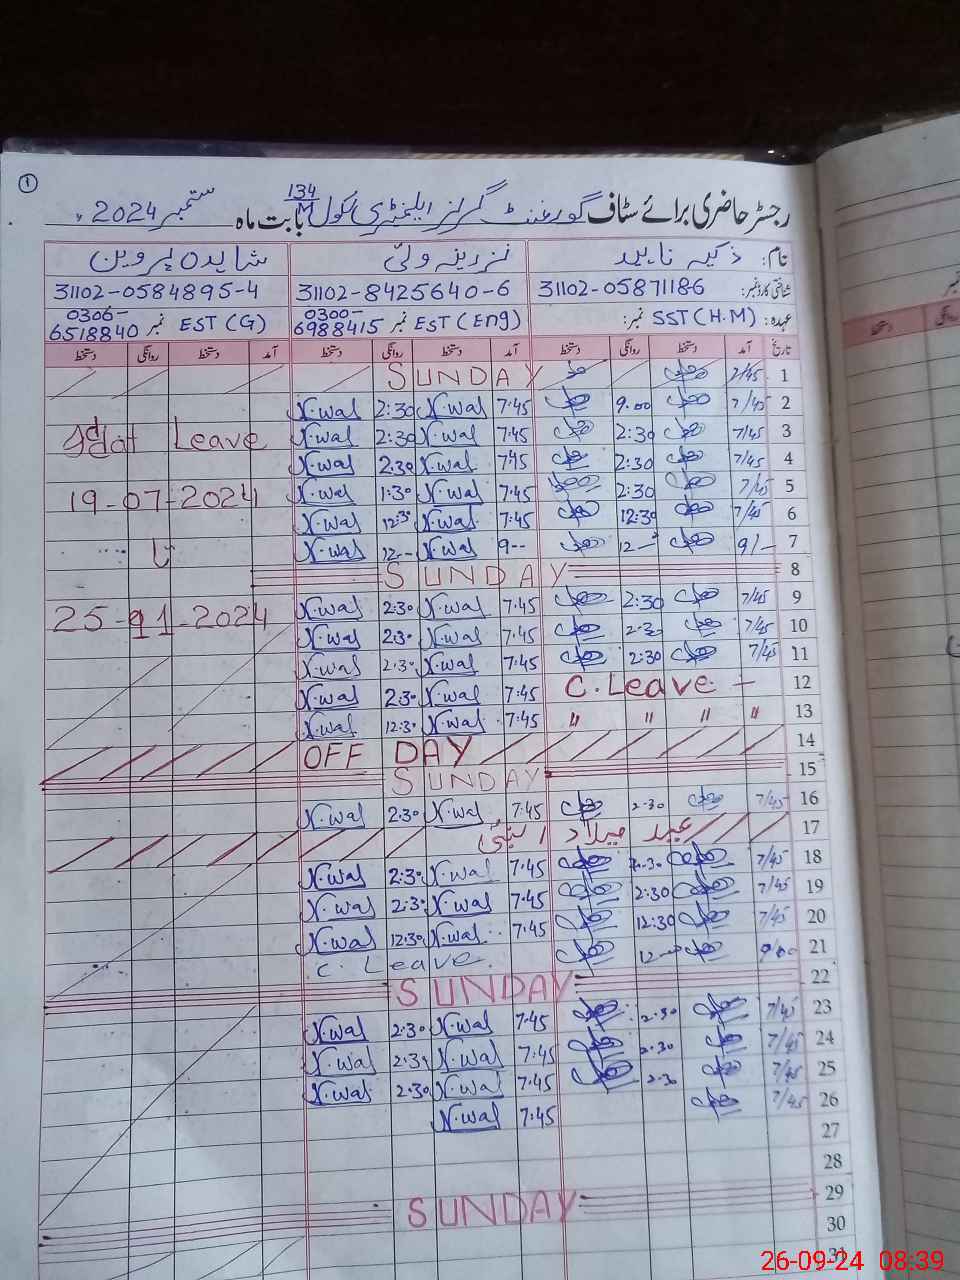 ①
رجسٹر حاضری برائے سٹاف گورنمنٹ گرلز ایلیمنٹری سکول 134/M بابت ماہ ستمبر 2024ء
نام: ذکیہ ناہید زرینہ ولی شاہدہ پروین
شناختی کارڈ نمبر: 31102-05871186 31102-8425640-6 31102-0584895-4
عہدہ: SST (H.M) نمبر: EST (Eng) نمبر 0300-6988415 EST (G) نمبر 0306-6518840
تاریخ آمد دستخط روانگی دستخط آمد دستخط روانگی دستخط آمد دستخط روانگی دستخط
1 7/45 SUNDAY
2 7/45 9.00 7.45 N.wal 2:30 N.wal
3 7/45 2:30 7.45 N.wal 2:30 N.wal Leave
4 7/45 2:30 7.45 N.wal 2:30 N.wal
5 7/45 2:30 7.45 N.wal 1:30 N.wal 19-07-2024
6 7/45 12:30 7.45 N.wal 12:30 N.wal
7 9/- 12- 9-- N.wal 12-- N.wal تا
8 SUNDAY
9 7/45 2:30 7.45 N.wal 2:30 N.wal 25-11-2024
10 7/45 2:30 7.45 N.wal 2:30 N.wal
11 7/45 2:30 7.45 N.wal 2:30 N.wal
12 C. Leave - 7.45 N.wal 2:30 N.wal
13 " " " " 7.45 N.wal 12:30 N.wal
14 OFF DAY
15 SUNDAY
16 7/45 2.30 7.45 N.wal 2:30 N.wal
17 عید میلاد النبیؐ
18 7/45 2.30 7.45 N.wal 2:30 N.wal
19 7/45 2:30 7.45 N.wal 2:30 N.wal
20 7/45 12:30 7.45 N.wal 12:30 N.wal
21 9/00 12- C. Leave
22 SUNDAY
23 7/45 2.30 7.45 N.wal 2:30 N.wal
24 7/45 2.30 7.45 N.wal 2:30 N.wal
25 7/45 2.30 7.45 N.wal 2:30 N.wal
26 7/45 7.45 N.wal
27
28
29 SUNDAY
30
31
26-09-24 08:39